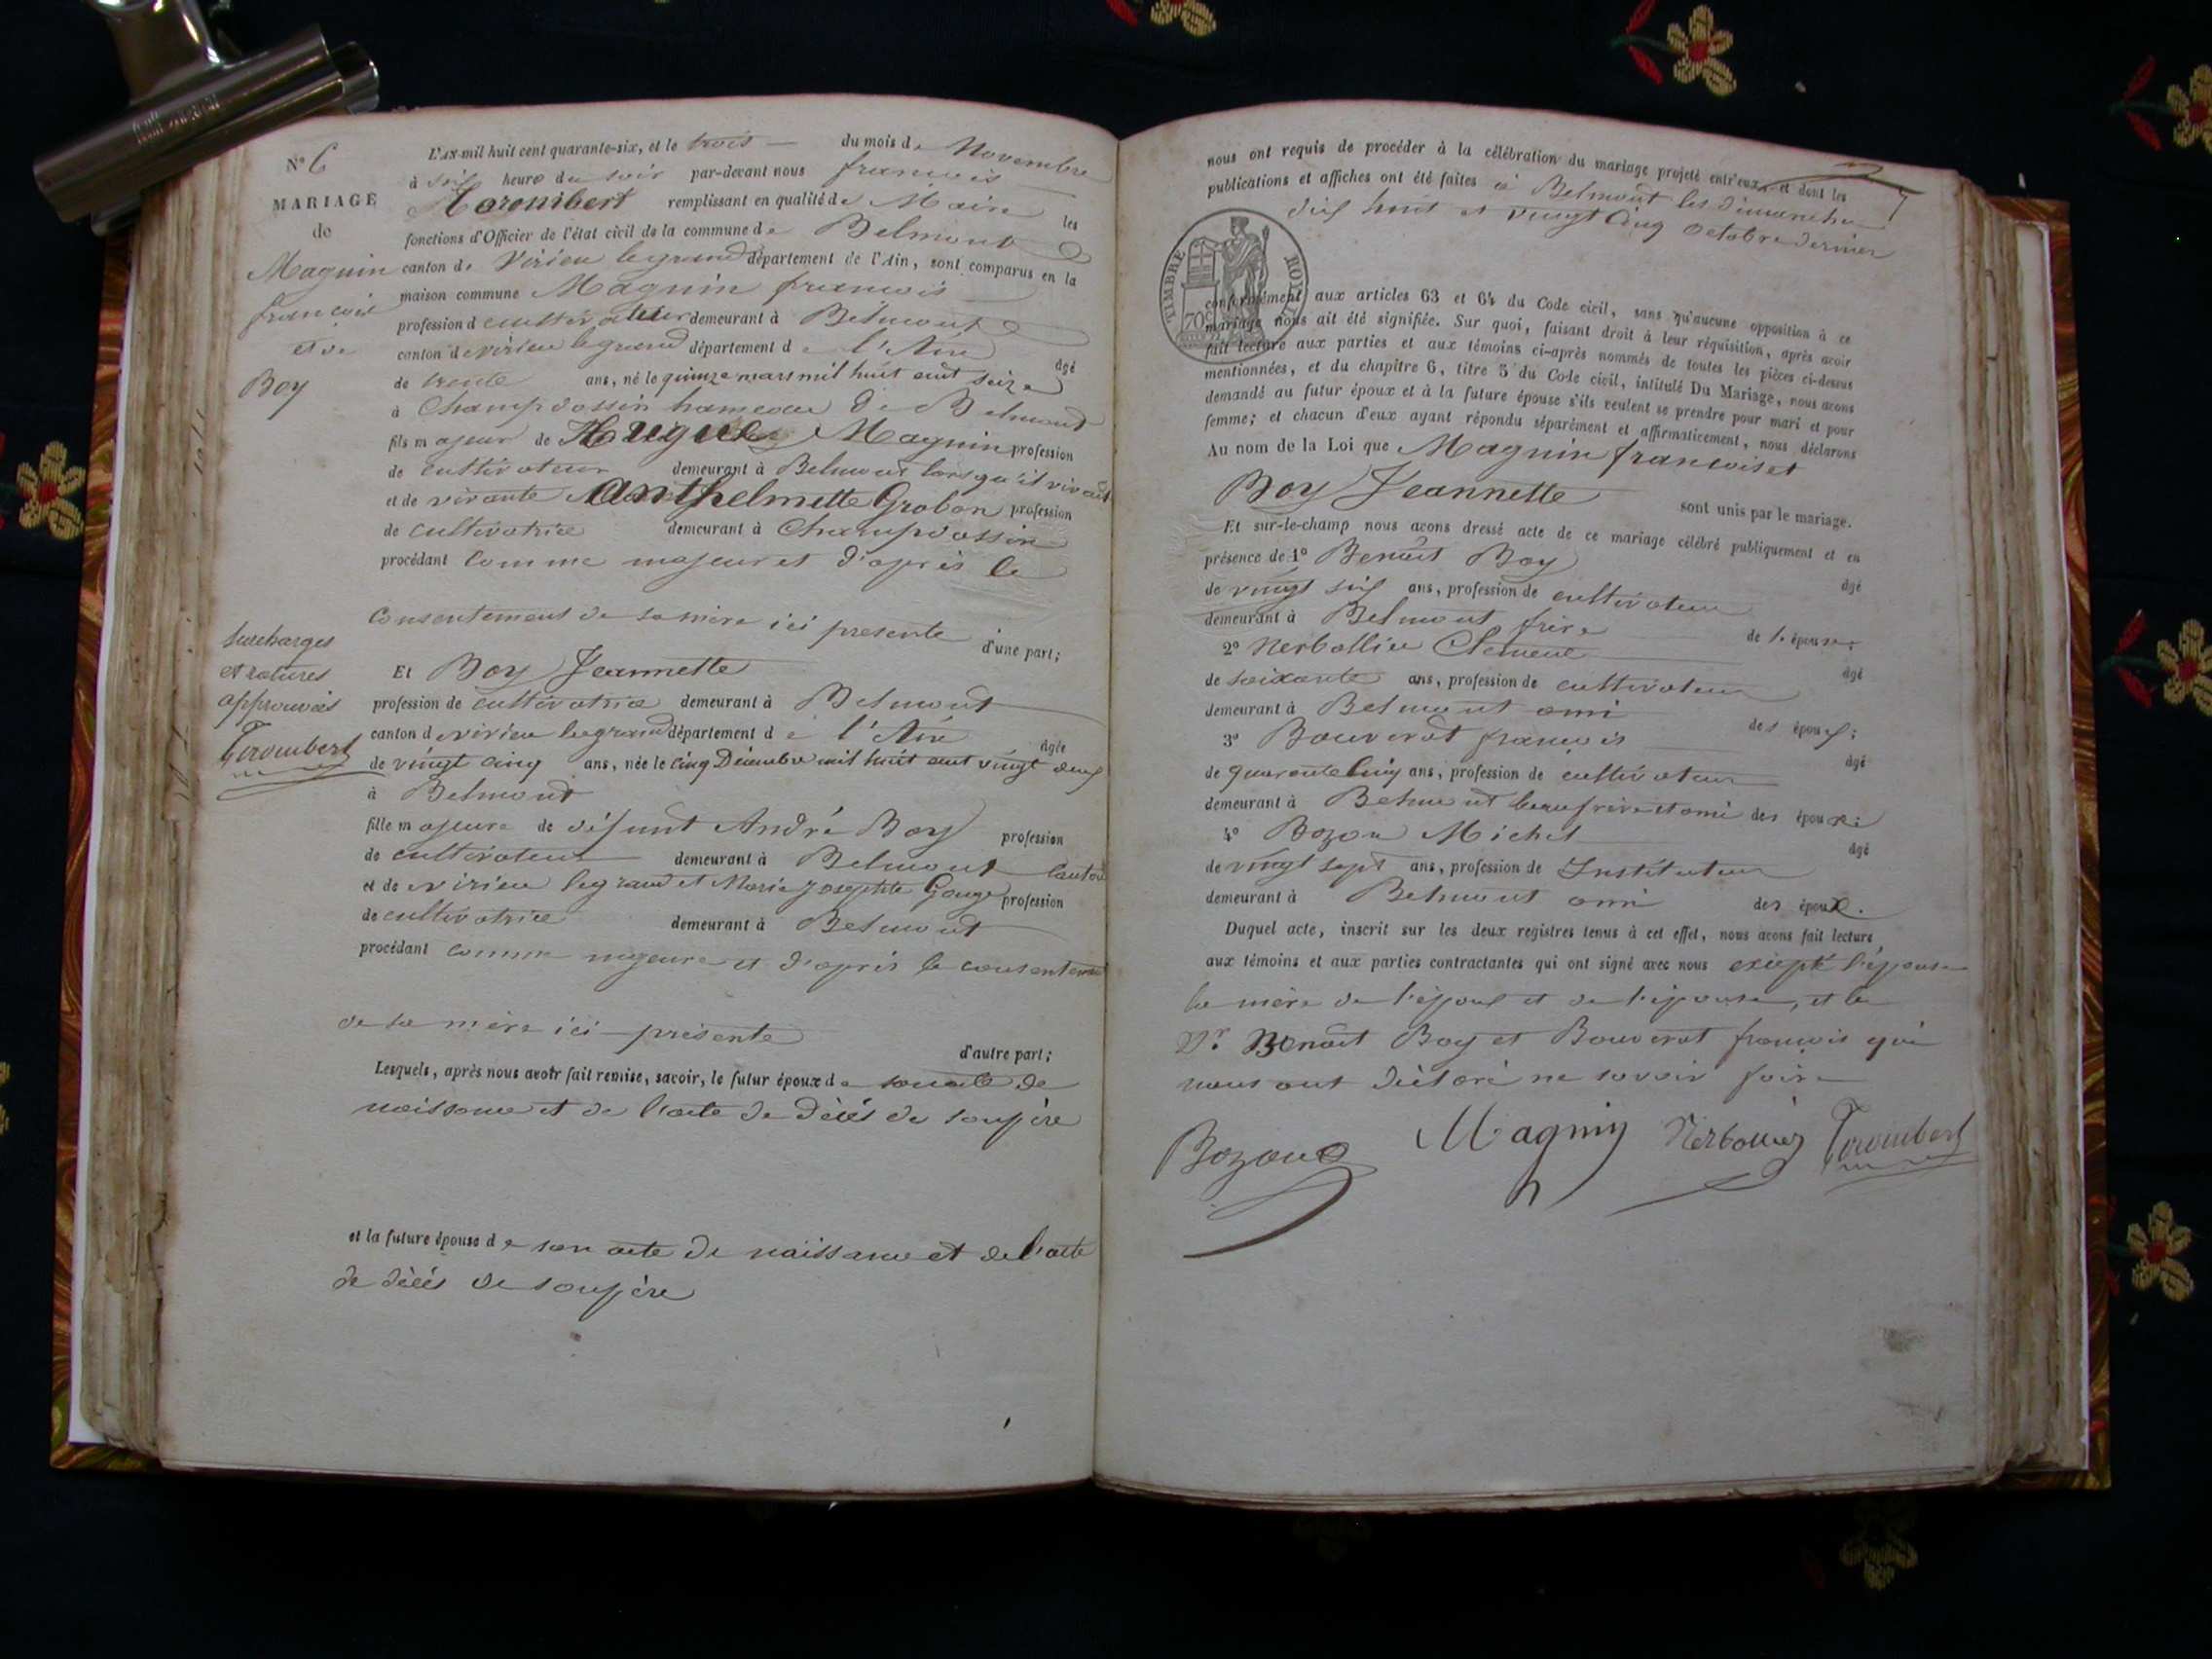 N° 6
MARIAGE
de
Maguin
françois
et de
Boy
L'AN mil huit cent quarante-six, et le trois du mois de Novembre
à six heure du soir par-devant nous françois
Tarombert remplissant en qualité de Maire les
fonctions d'Officier de l'état civil de la commune de Belmont
canton de Virieu legrand département de l'Ain, sont comparus en la
maison commune Maguin françois
profession d cultivateur demeurant à Belmont
canton de virieu legrand département de l'Ain âgé
de trente ans, né le quinze mars mil huit cent seize
à Champdossin hameau de Belmont
fils majeur de Hugues Maguin profession
de cultivateur demeurant à Belmont lorsqu'il vivait
et de vivante Anthelmette Grobon profession
de cultivatrice demeurant à Champdossin
procédant comme majeur et d'après le
consentement de sa mère ici presente d'une part;
surcharges
et ratures
approuvées
Tarombert
Et Boy Jeannette
profession de cultivatrice demeurant à Belmont
canton de virieu legrand département de l'Ain âgée
de vingt cinq ans, née le cinq Décembre mil huit cent vingt deux
à Belmont
fille majeure de défunt André Boy profession
de cultivateur demeurant à Belmont canton
et de virieu legrand et Marie Josephte Gouge profession
de cultivatrice demeurant à Belmont
procédant comme majeure et d'après le consentement
de sa mère ici présente
d'autre part;
Lesquels, après nous avoir fait remise, savoir, le futur époux de sonacte de
naissance et de l'acte de décés de sonpère
et la future épouse de son acte de naissance et de l'acte
de décés de sonpère
nous ont requis de procéder à la célébration du mariage projeté entr'eux, et dont les
publications et affiches ont été faites à Belmont les dimanches
dix huit et vingt Cinq octobre dernier
TIMBRE ROYAL
70c
conformément aux articles 63 et 64 du Code civil, sans qu'aucune opposition à ce
mariage nous ait été signifiée. Sur quoi, faisant droit à leur réquisition, après avoir
fait lecture aux parties et aux témoins ci-après nommés de toutes les pièces ci-dessus
mentionnées, et du chapitre 6, titre 5 du Code civil, intitulé Du Mariage, nous avons
demandé au futur époux et à la future épouse s'ils veulent se prendre pour mari et pour
femme; et chacun d'eux ayant répondu séparément et affirmativement, nous déclarons
Au nom de la Loi que Maguin françois et
Boy Jeannette sont unis par le mariage.
Et sur-le-champ nous avons dressé acte de ce mariage célébré publiquement et en
présence de 1° Benoit Boy âgé
de vingt six ans, profession de cultivateur
demeurant à Belmont frère de l'épouse;
2° Nerbollier Clément âgé
de soixante ans, profession de cultivateur
demeurant à Belmont ami des époux;
3° Bouverat françois âgé
de quarante Cinq ans, profession de cultivateur
demeurant à Belmont beaufrère et ami des époux;
4° Bozon Michel âgé
de vingt sept ans, profession de Instituteur
demeurant à Belmont ami des époux.
Duquel acte, inscrit sur les deux registres tenus à cet effet, nous avons fait lecture
aux témoins et aux parties contractantes qui ont signé avec nous excepté l'épouse
la mère de l'époux et de l'épouse, et le
Sr. Benoit Boy et Bouverat françois qui
nous ont déclaré ne savoir faire
Bozon Maguin Nerbollier Tarombert